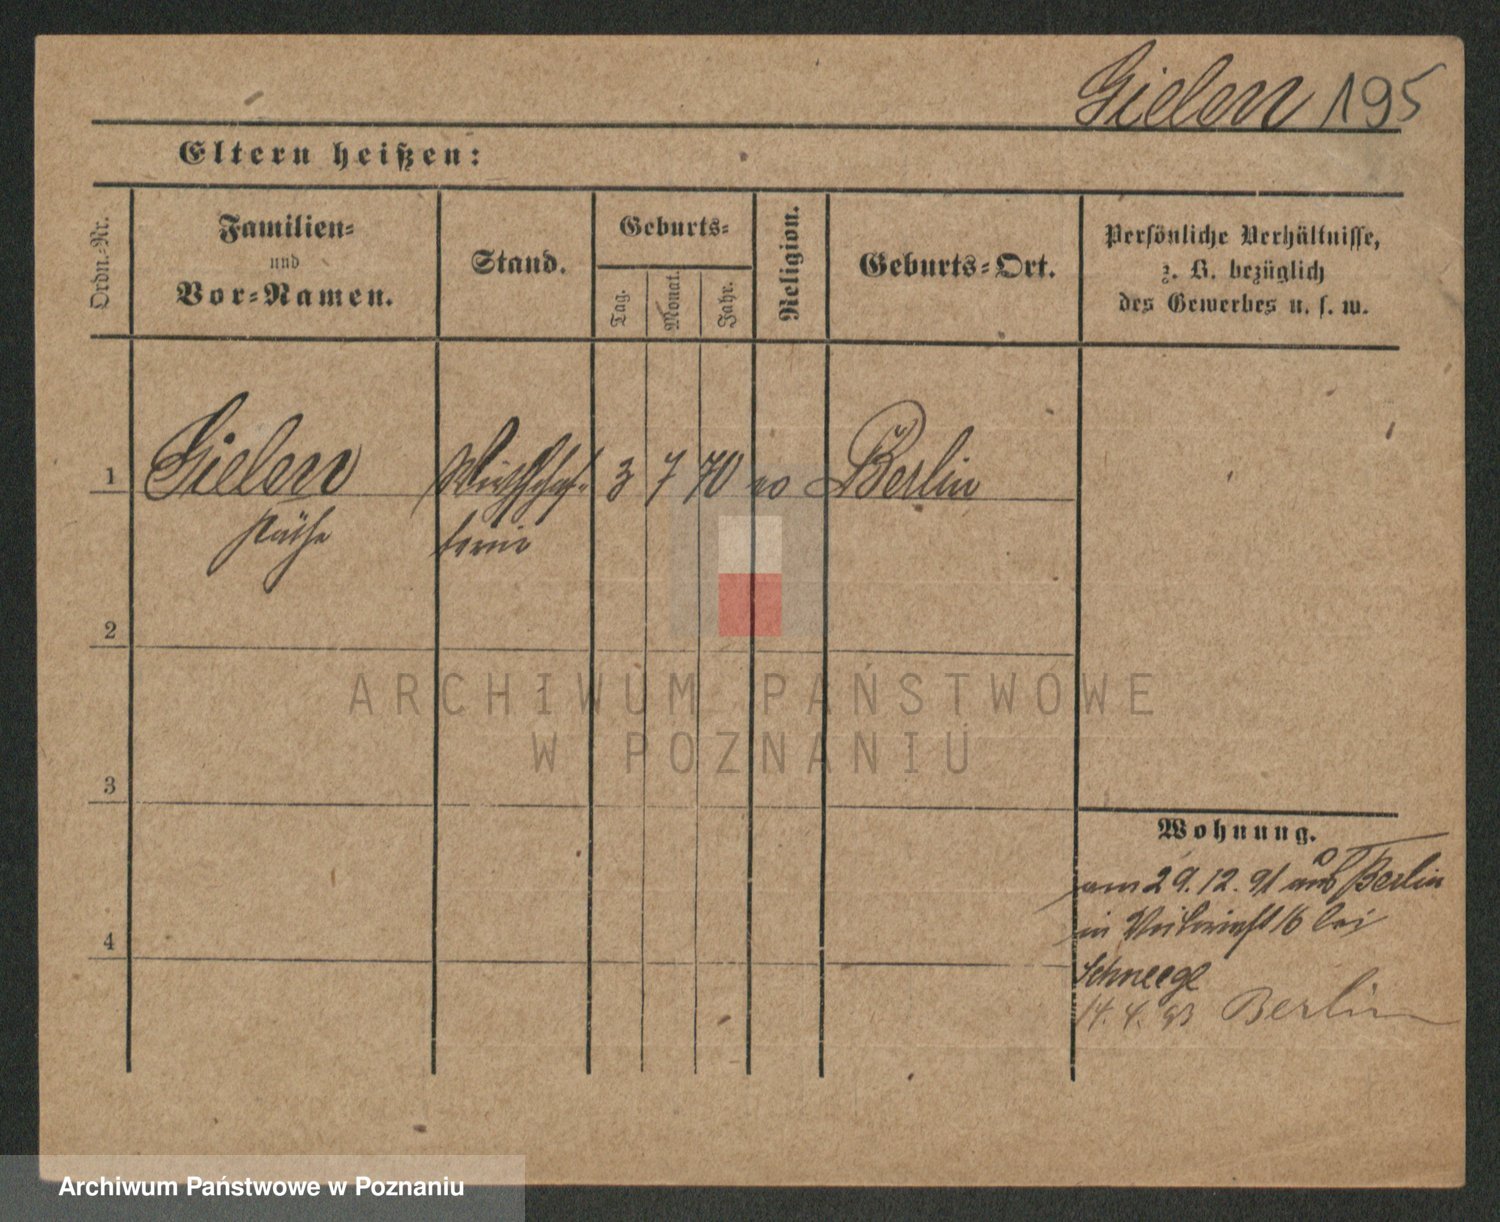 Gielen 195
Eltern heißen:
Ordn.-Nr.
Familien-
und
Vor-Namen.
Stand.
Geburts-
Tag.
Monat.
Jahr.
Religion.
Geburts-Ort.
Persönliche Verhältnisse,
z. B. bezüglich
des Gewerbes u. s. w.
1 Gielen Wirthschaf- 3 7 70 Berlin
Käthe terin
2
3
4
Wohnung.
am 29.12.91 aus Berlin
in 16 bei
Schneege
14. 4. 93 Berlin
ARCHIWUM PAŃSTWOWE
W POZNANIU
Archiwum Państwowe w Poznaniu